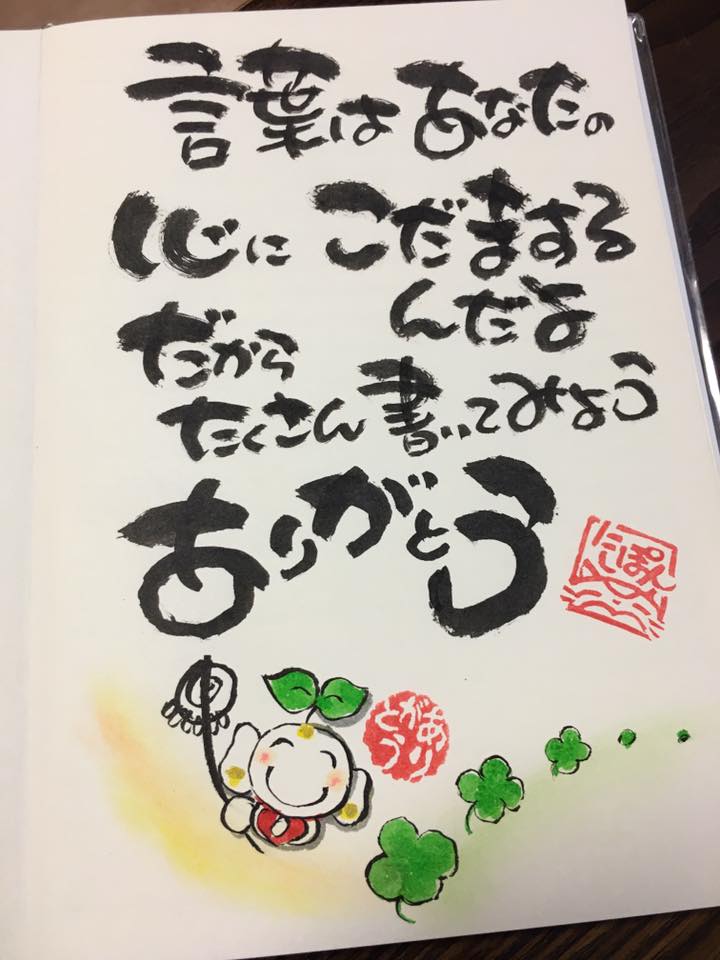 言葉はあなたの
心にこだまする
んだよ
だから
たくさん書いてみよう
ありがとう
にぽん
ありがとう